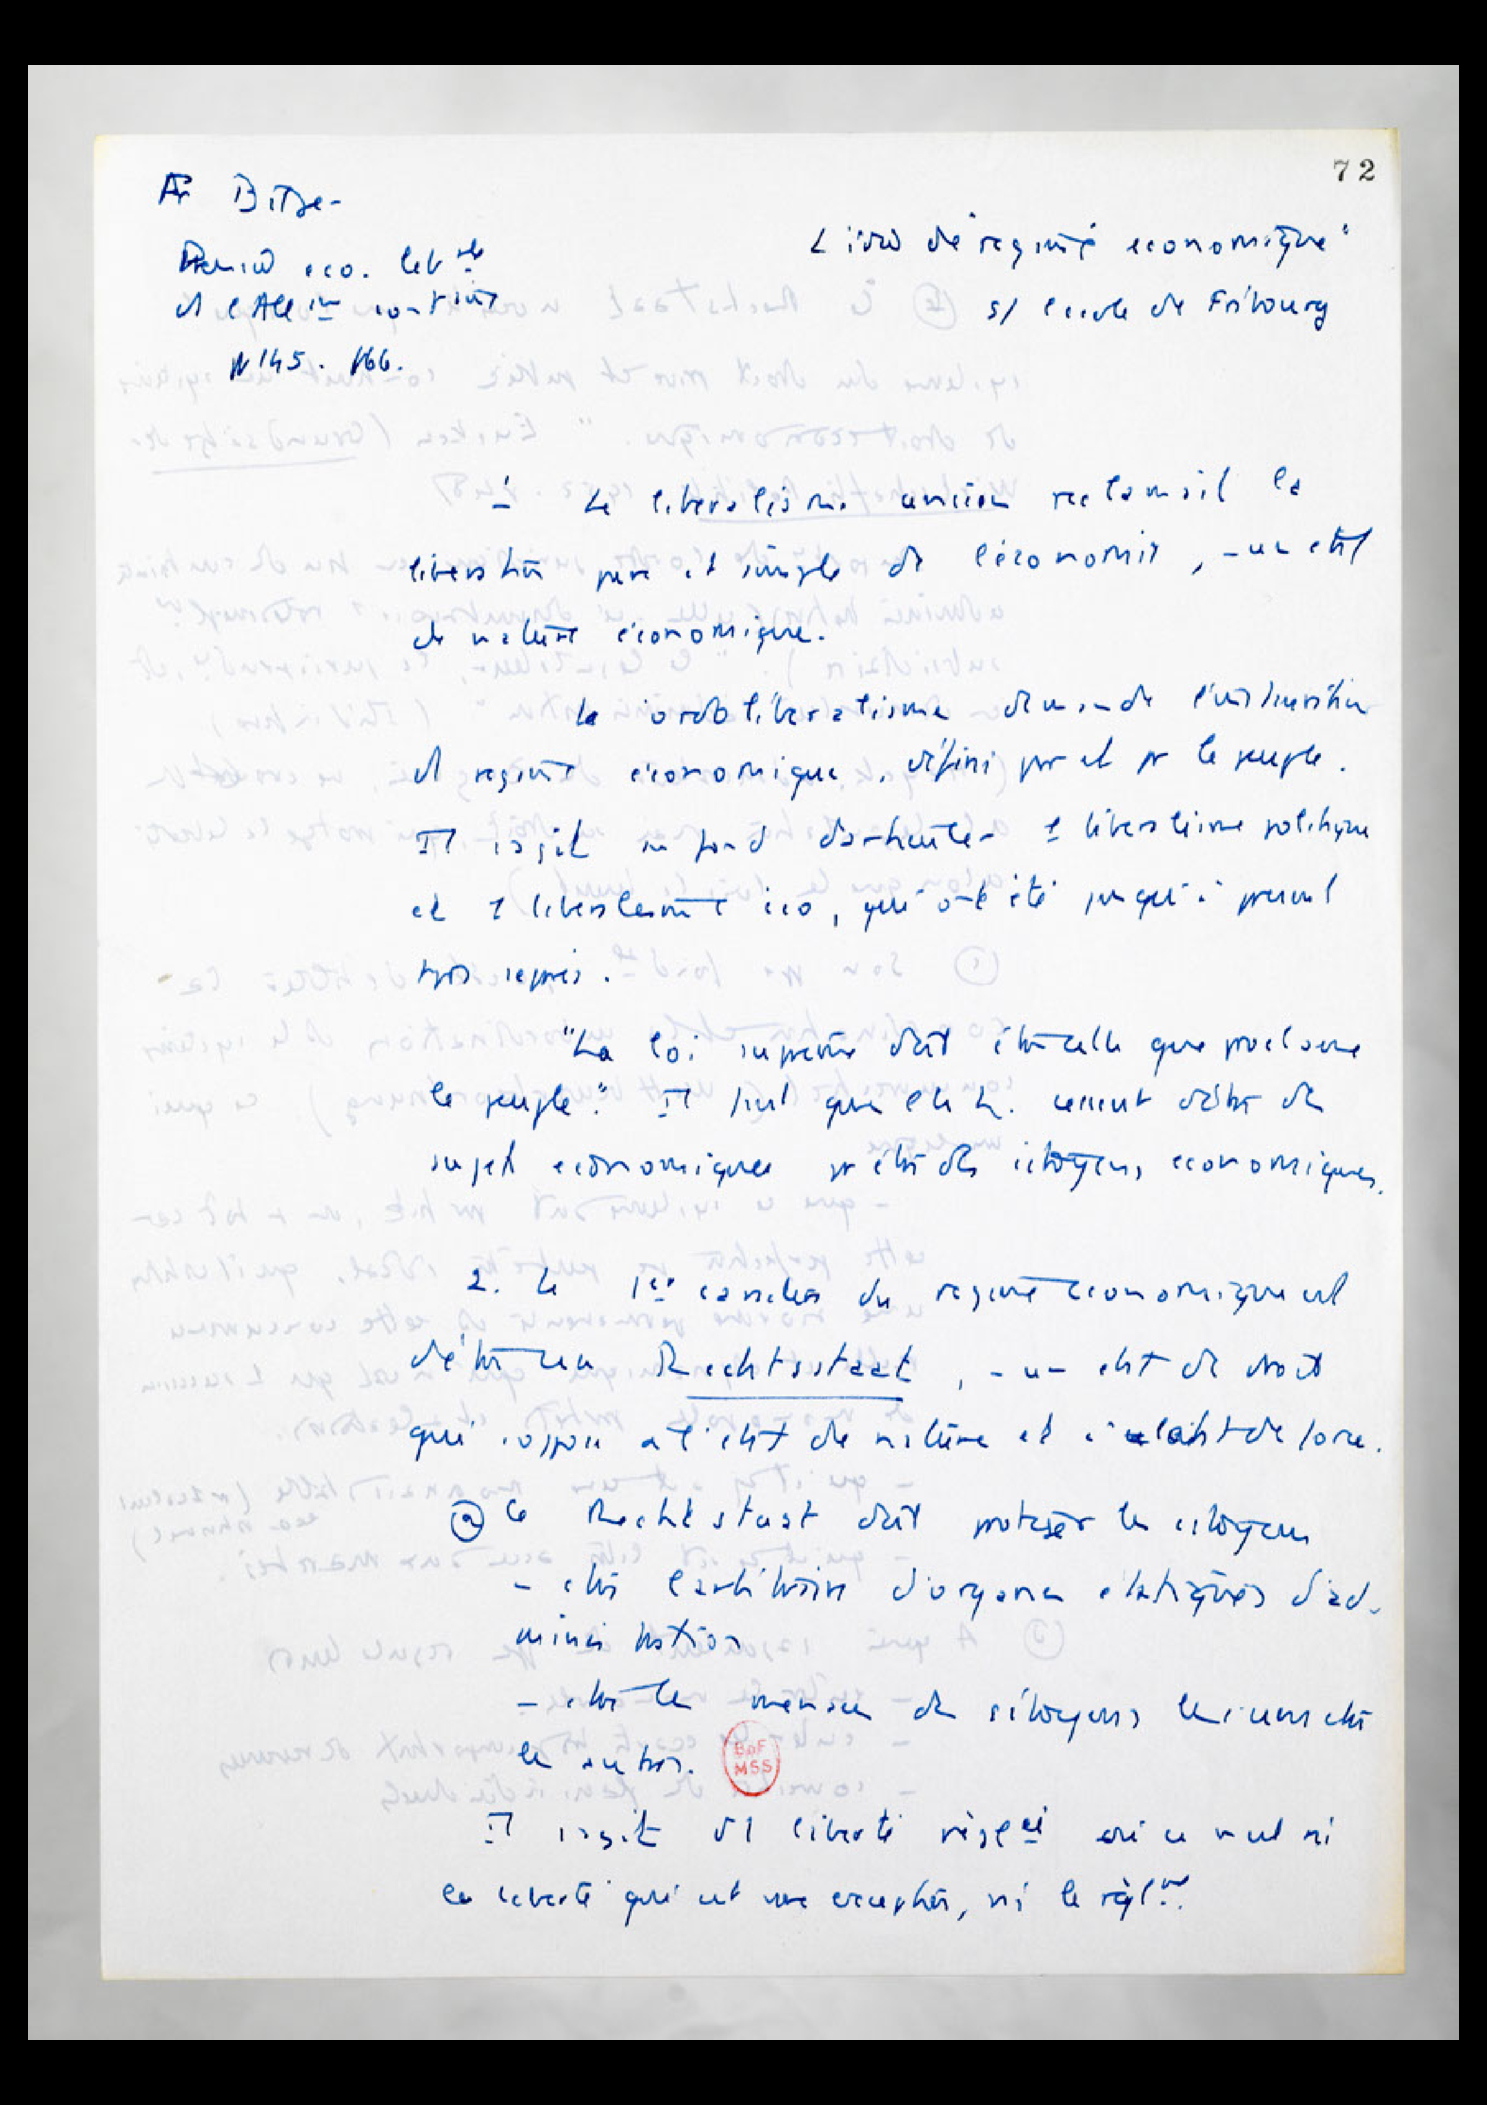 72
Fr Bilger
Pensée éco. lib^le
de l'All^gne contemp
p 145. 166.
L'idée de "régime économique"
s/ l'école de Fribourg
1 Le libéralisme ancien réclamait la
liberté pure et simple de l'économie, - un état
de nature économique.
Le ordolibéralisme demande l'instauration
d'1 régime économique, défini par et pr le peuple.
Il s'agit au fond d'articuler 1 libéralisme politique
et 1 libéralisme éco, qui ont été jusqu'à présent
séparés.
"La loi suprême doit être celle que proclame
le peuple". Il faut que les h. cessent d'être des
sujets économiques pr être des citoyens économiques.
2. Le 1er caractère du régime économique est
d'être un Rechtsstaat, - un état de droit
qui s'oppose à l'état de nature et à l'état de force.
(a) Le Rechtsstaat doit protéger les citoyens
- contre l'arbitraire d'organes étatiques d'ad-
ministration
- contre les menées des citoyens les uns contre
les autres.
BnF
MSS
Il s'agit d'1 liberté réglée où ce n'est ni
la liberté qui est une exception, ni le régl^nt.